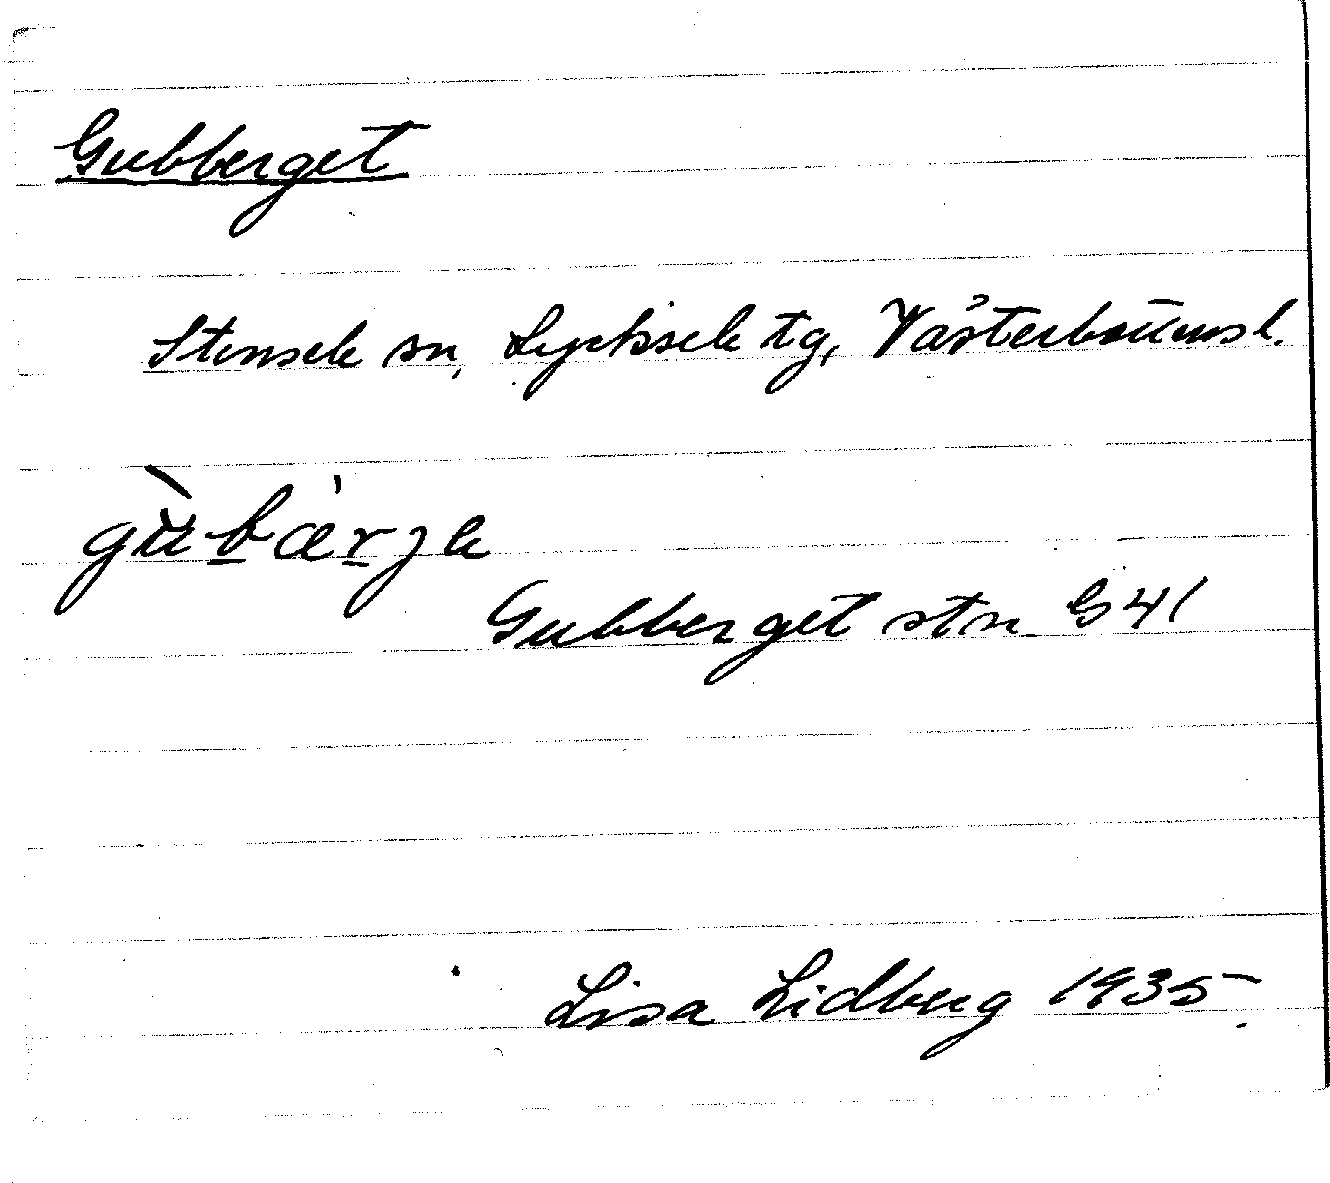 Gubberget
Stensele sn, Lycksele tg, Västerbottensl.
gùb̲ær̲ʒe
Gubberget stn G 41
Lisa Lidberg 1935